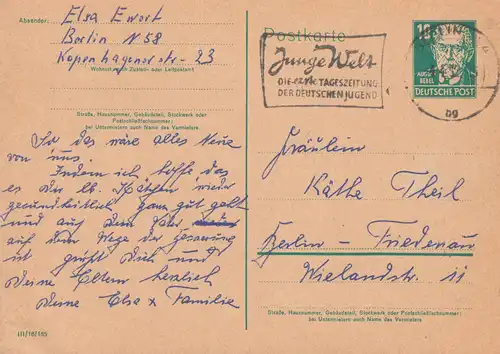 Absender: Elsa Ewort
Berlin N 58
Kopenhagener str- 23
Wohnort, auch Zustell- oder Leitpostamt
Straße, Hausnummer, Gebäudeteil, Stockwerk oder
Postschließfachnummer;
bei Untermietern auch Name des Vermieters
So das wäre alles Neue
von uns.
Indem ich hoffe das
es Dir lb. Kätchen wieder
gesundheitlich ganz gut geht
und auf dem
auf dem Wege der Genesung
ist grüßt Dich und
Deine Eltern herzlich
Deine Elsa u Familie
III/18/185
Postkarte
Junge Welt
DIE erste TAGESZEITUNG
DER DEUTSCHEN JUGEND
BERLIN
bg
10
AUGUST
BEBEL
DEUTSCHE POST
Fräulein
Käthe Theil
Berlin - Friedenau
Wielandstr. 11
Straße, Hausnummer, Gebäudeteil, Stockwerk oder Postschließfachnummer;
bei Untermietern auch Name des Vermieters